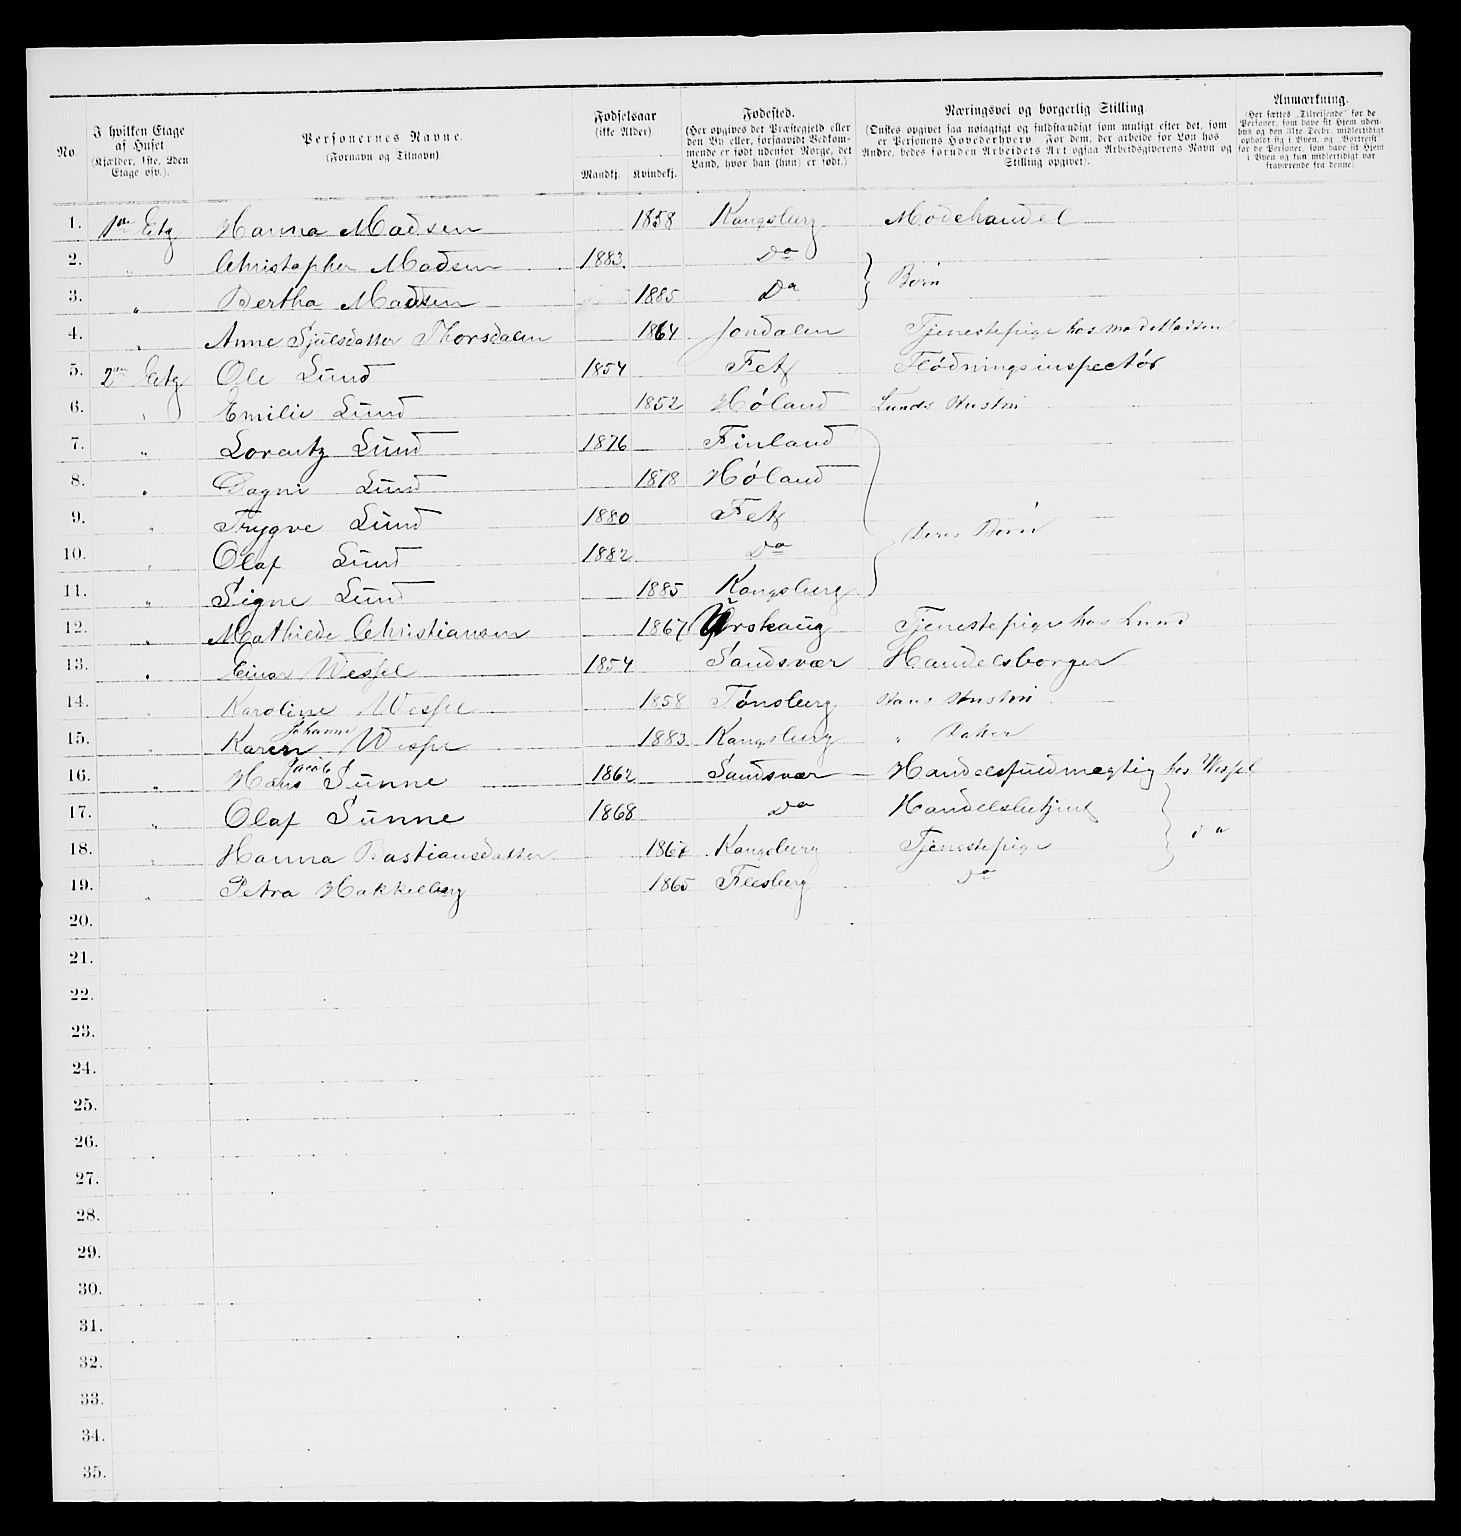 No.
I hvilken Etage af Huset (Kjælder, 1ste, 2den Etage osv.).
Personernes Navne. (Fornavn og Tilnavn)
Fødselsaar (ikke Alder) Mandkj. Kvindekj.
Fødested. (Her opgives det Præstegjeld eller den By eller, forsaavidt Vedkommende er født udenfor Norge, det Land, hvor han (hun) er født.)
Næringsvei og borgerlig Stilling (Ønskes opgivet saa nøiagtigt og fuldstændigt som muligt efter det, som er Personens Hovederhverv. For dem, der arbeide for Løn hos Andre, bedes foruden Arbeidets Art ogsaa Arbeidsgiverens Navn og Stilling opgivet).
Anmærkning. (Her sættes „Tilreisende" for de Personer, som have sit Hjem udenbys og den 31te Decbr. midlertidigt opholdt sig i Byen, og „Bortreist" for de Personer, som have sit Hjem i Byen og kun midlertidigt var fraværende fra denne).
1. 1ste Etg Hanna Madsen 1858 Kongsberg Modehandel
2. " Christopher Madsen 1883. Do
3. " Bertha Madsen 1885 Do } Børn
4. " Anne Sjulsdatter Thorsdalen 1864 Jondalen Tjenestepige hos mad Madsen
5. 2den Etg Ole Lund 1854 Fet Flødningsinspectør
6. " Emilie Lund 1852 Høland Lunds Hustru
7. " Lorentz Lund 1876 Finland
8. " Dagni Lund 1878 Høland
9. " Trygve Lund 1880 Fet
10. " Olaf Lund 1882 Do } deres Børn
11. " Signe Lund 1885 Kongsberg
12. " Mathilde Christiansen 1867 Urskoug Tjenestepige hos Lund
13. " Einar Wessel 1854 Sandsvær Handelsborger
14. " Karoline Wessel 1858 Tønsberg Hans Hustru
15. " Karen Johanne Wessel 1883 Kongsberg " Datter
16. " Hans Jacob Sunne 1862 Sandsvær Handelsfuldmægtig hos Wessel
17. " Olaf Sunne 1868 Do Handelsbetjent
18. " Hanna Bastiansdatter 1867 Kongsberg Tjenestepige } do
19. " Petra Hakkeberg 1865 Flesberg do
20.
21.
22.
23.
24.
25.
26.
27.
28.
29.
30.
31.
32.
33.
34.
35.